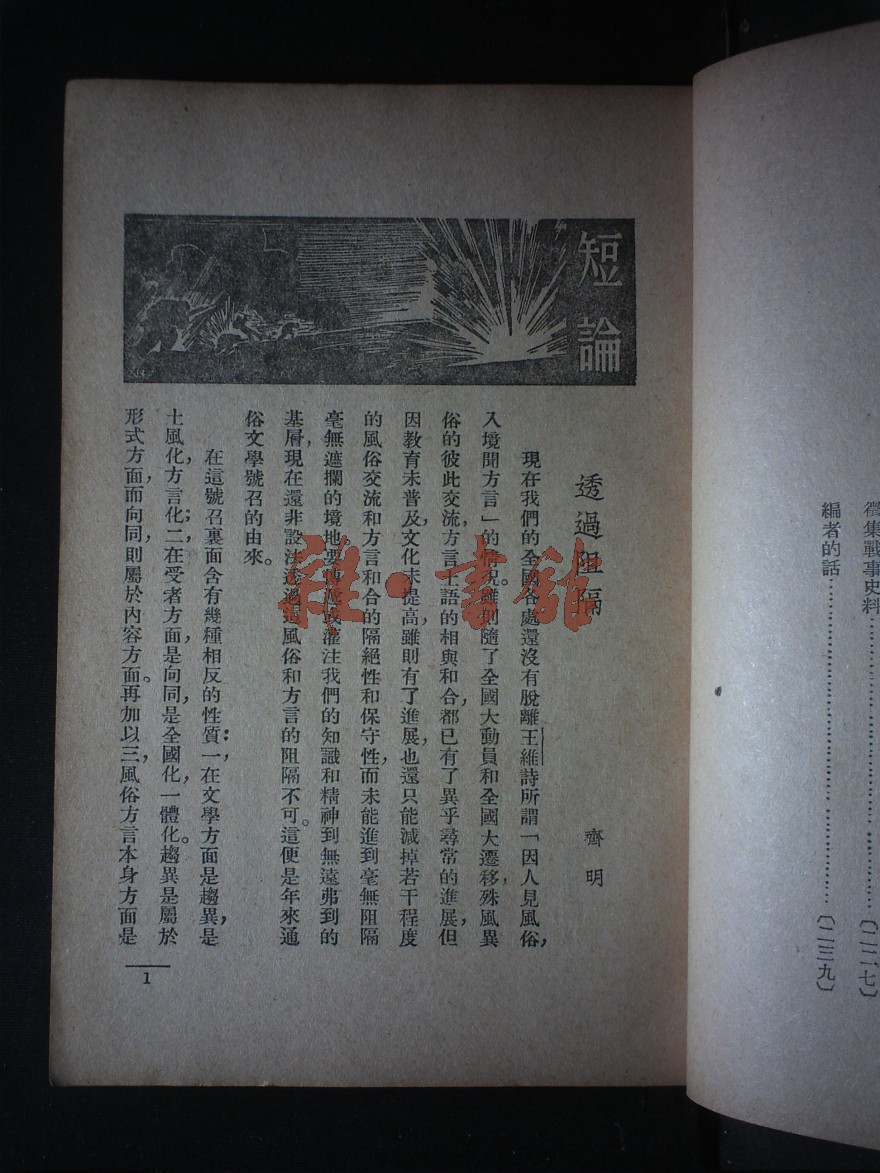 徵集戰事史料……………………………………(二二七)
編者的話……………………………………(二三九)
短論
透過阻隔
齊明
現在我們的全國各處還沒有脫離王維詩所謂「因人見風俗，
入境聞方言」的情況。雖則隨了全國大動員和全國大遷移，殊風異
俗的彼此交流，方言土語的相與和合，都已有了異乎尋常的進展，但
因教育未普及，文化未提高，雖則有了進展，也還只能減掉若干程度
的風俗交流和方言和合的隔絕性和保守性，而未能進到毫無阻隔
毫無遮攔的境地。要傳達或灌注我們的知識和精神到無遠弗到的
基層，現在還非設法透過這風俗和方言的阻隔不可。這便是年來通
俗文學號召的由來。
在這號召裏面含有幾種相反的性質：一，在文學方面是趨異，是
土風化，方言化；二，在受者方面，是向同，是全國化，一體化。趨異是屬於
形式方面，而向同，則屬於內容方面。再加以三，風俗方言本身方面是
1
雜·書館